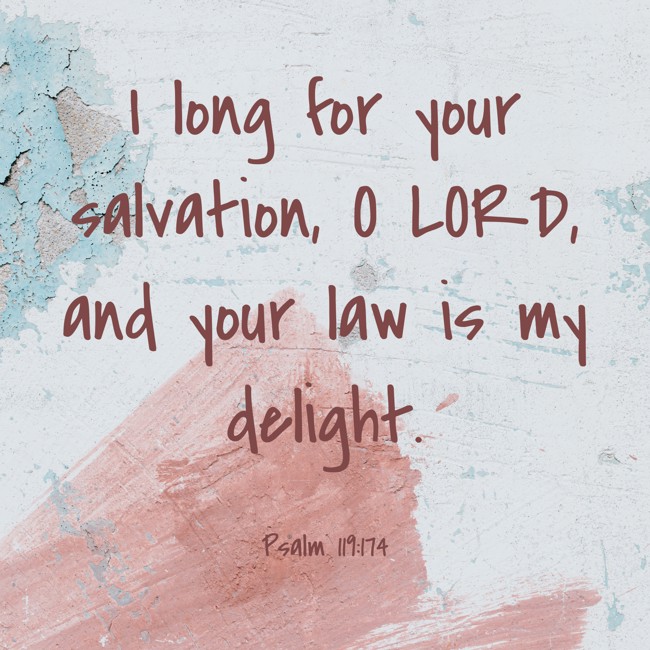 I long for your
salvation, O LORD,
and your law is my
delight.
Psalm 119:174